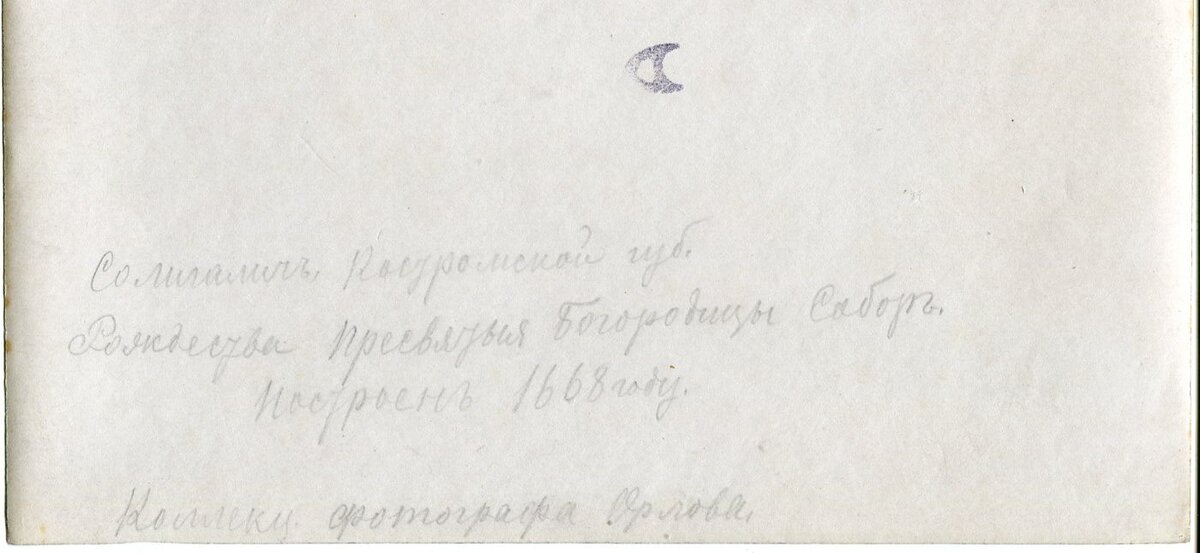 Солигаличъ. Костромской губ.
Рождества Пресвятыя Богородицы Соборъ.
Построенъ 1668 году.
Коллекц. фотографа Орлова.